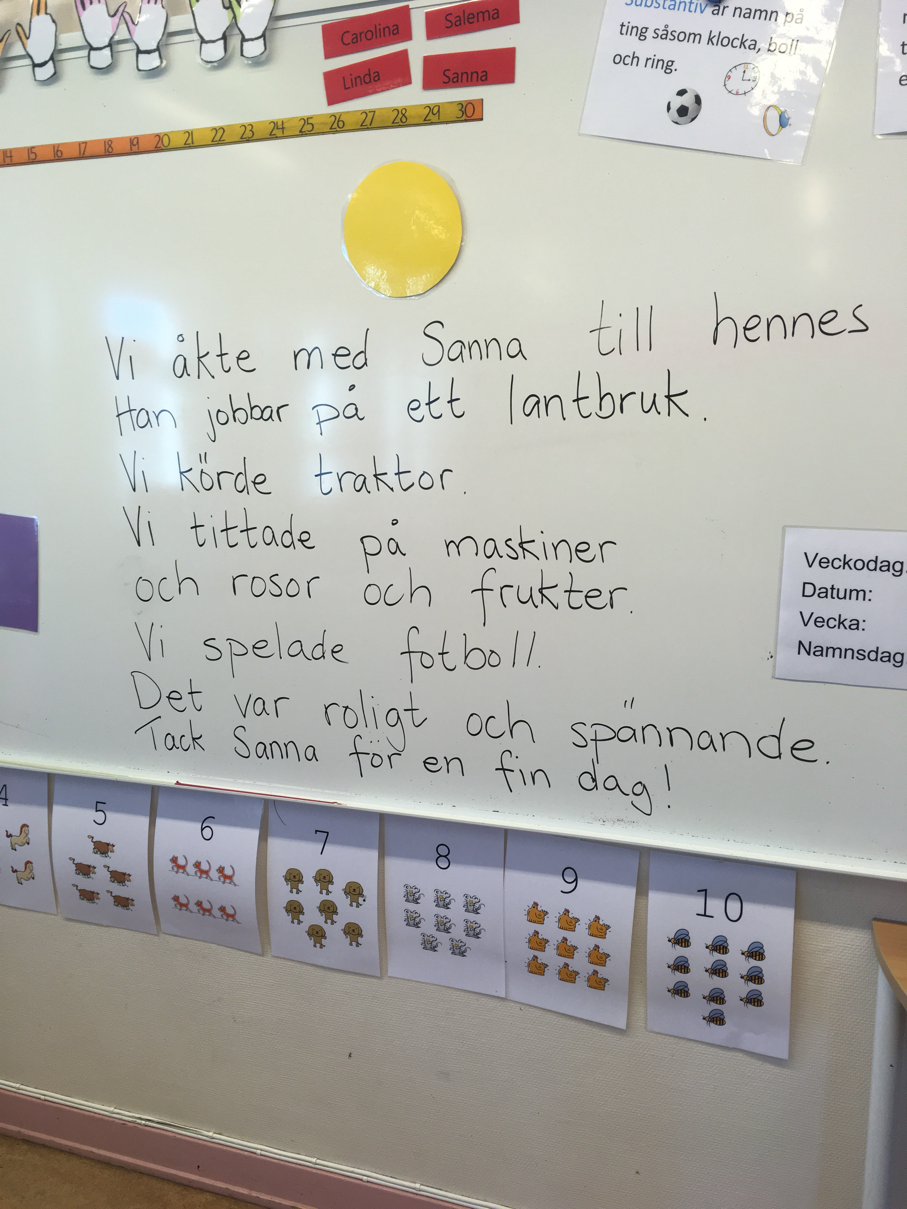 Carolina
Salema
Linda
Sanna
Substantiv är namn på
ting såsom klocka, boll
och ring.
14 15 16 17 18 19 20 21 22 23 24 25 26 27 28 29 30
Vi åkte med Sanna till hennes
Han jobbar på ett lantbruk.
Vi körde traktor.
Vi tittade på maskiner
och rosor och frukter.
Vi spelade fotboll.
Det var roligt och spännande.
Tack Sanna för en fin dag!
Veckodag:
Datum:
Vecka:
Namnsdag:
4
5
6
7
8
9
10